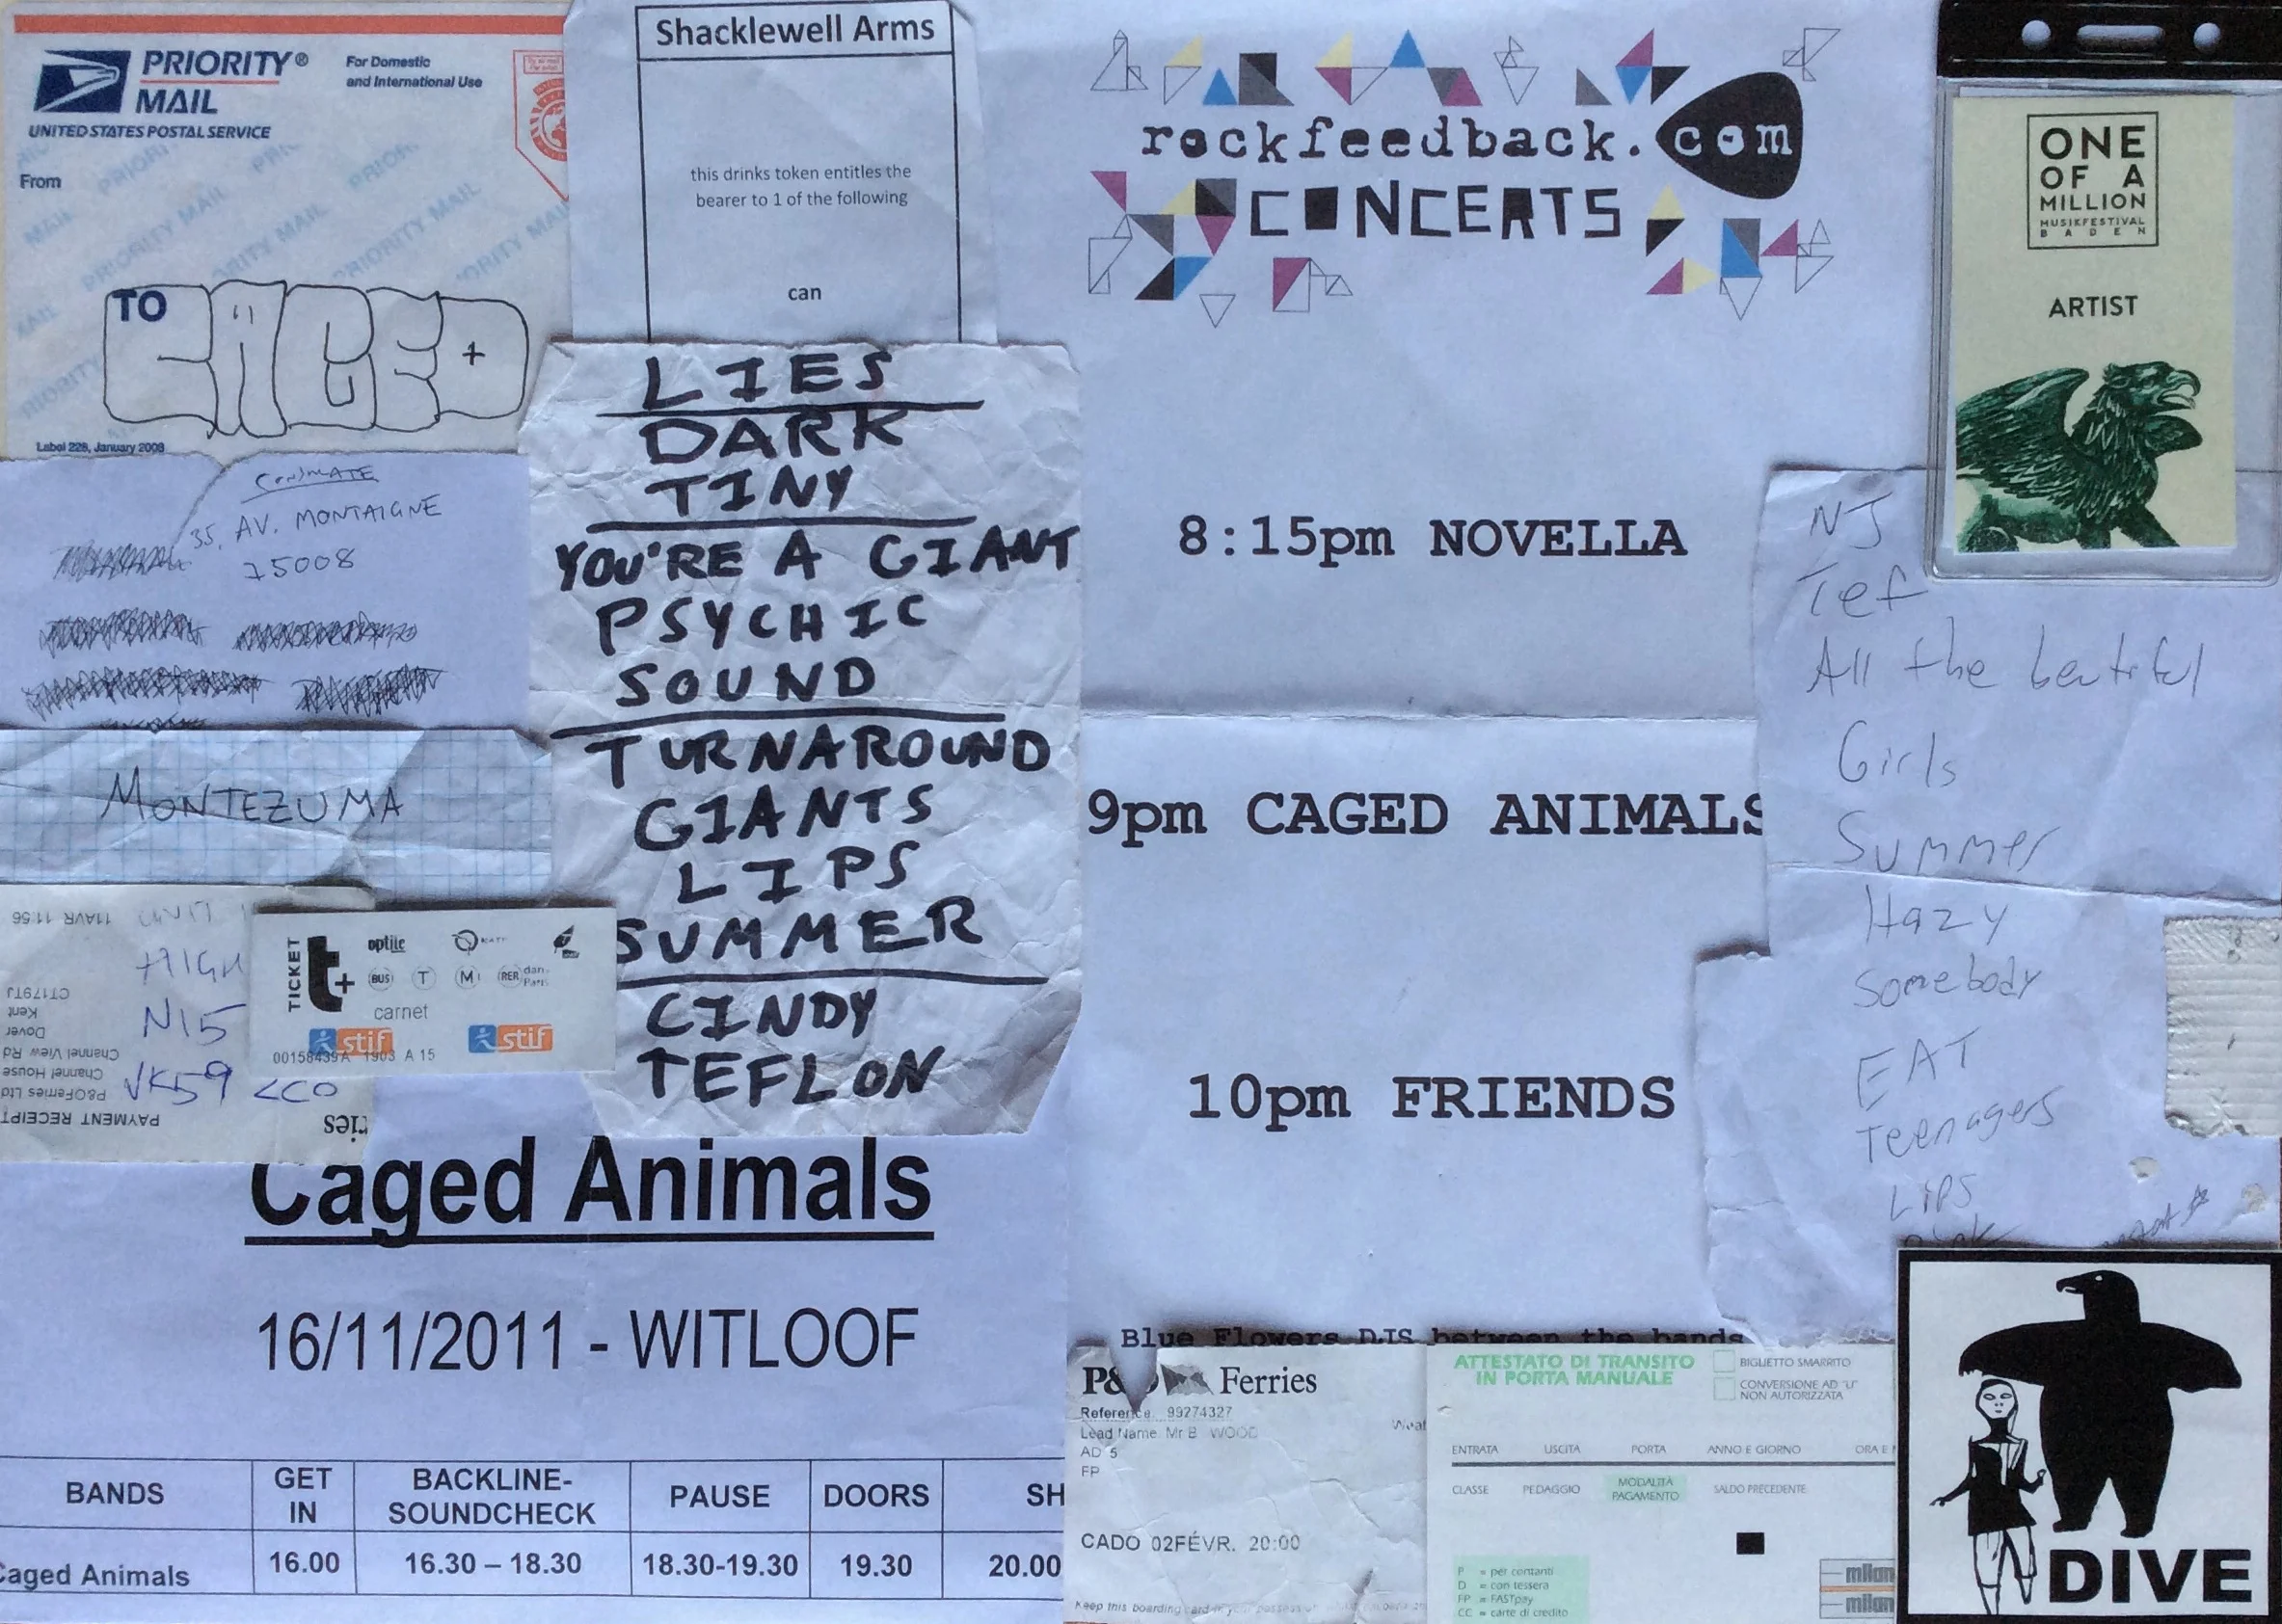 PRIORITY®
MAIL
UNITED STATES POSTAL SERVICE
For Domestic
and International Use
From
TO
CAGED
Label 228, January 2008
35, AV. MONTAIGNE
75008
MONTEZUMA
11AVR 11:56
UNIT
HIGH
N15
VK59 LCO
CT179TJ
Kent
Dover
Channel View Rd
Channel House
P&OFerries Ltd
PAYMENT RECEIPT
TICKET
t+
optile
RATP
BUS T M RER dans Paris
carnet
stif stif
00158439A 1903 A 15
Shacklewell Arms
this drinks token entitles the
bearer to 1 of the following
can
LIES
DARK
TINY
YOU'RE A GIANT
PSYCHIC
SOUND
TURNAROUND
GIANTS
LIPS
SUMMER
CINDY
TEFLON
Caged Animals
16/11/2011 - WITLOOF
BANDS GET IN BACKLINE-SOUNDCHECK PAUSE DOORS SH
Caged Animals 16.00 16.30 – 18.30 18.30-19.30 19.30 20.00
rockfeedback.com
CONCERTS
8:15pm NOVELLA
9pm CAGED ANIMALS
10pm FRIENDS
Blue Flowers DJS between the bands
P&O Ferries
Reference. 99274327
Lead Name. Mr B WOOD
AD 5
FP
CADO 02FÉVR. 20:00
Keep this boarding card in your
ATTESTATO DI TRANSITO
IN PORTA MANUALE
BIGLIETTO SMARRITO
CONVERSIONE AD "U"
NON AUTORIZZATA
ENTRATA USCITA PORTA ANNO E GIORNO ORA E
CLASSE PEDAGGIO MODALITÀ PAGAMENTO SALDO PRECEDENTE
P = per contanti
D = con tessera
FP = FASTpay
CC = carte di credito
milan
milan
ONE
OF A
MILLION
MUSIKFESTIVAL
BADEN
ARTIST
NJ
Tef
All the beutiful
Girls
Summer
Hazy
Somebody
EAT
Teenagers
LiPS
DIVE